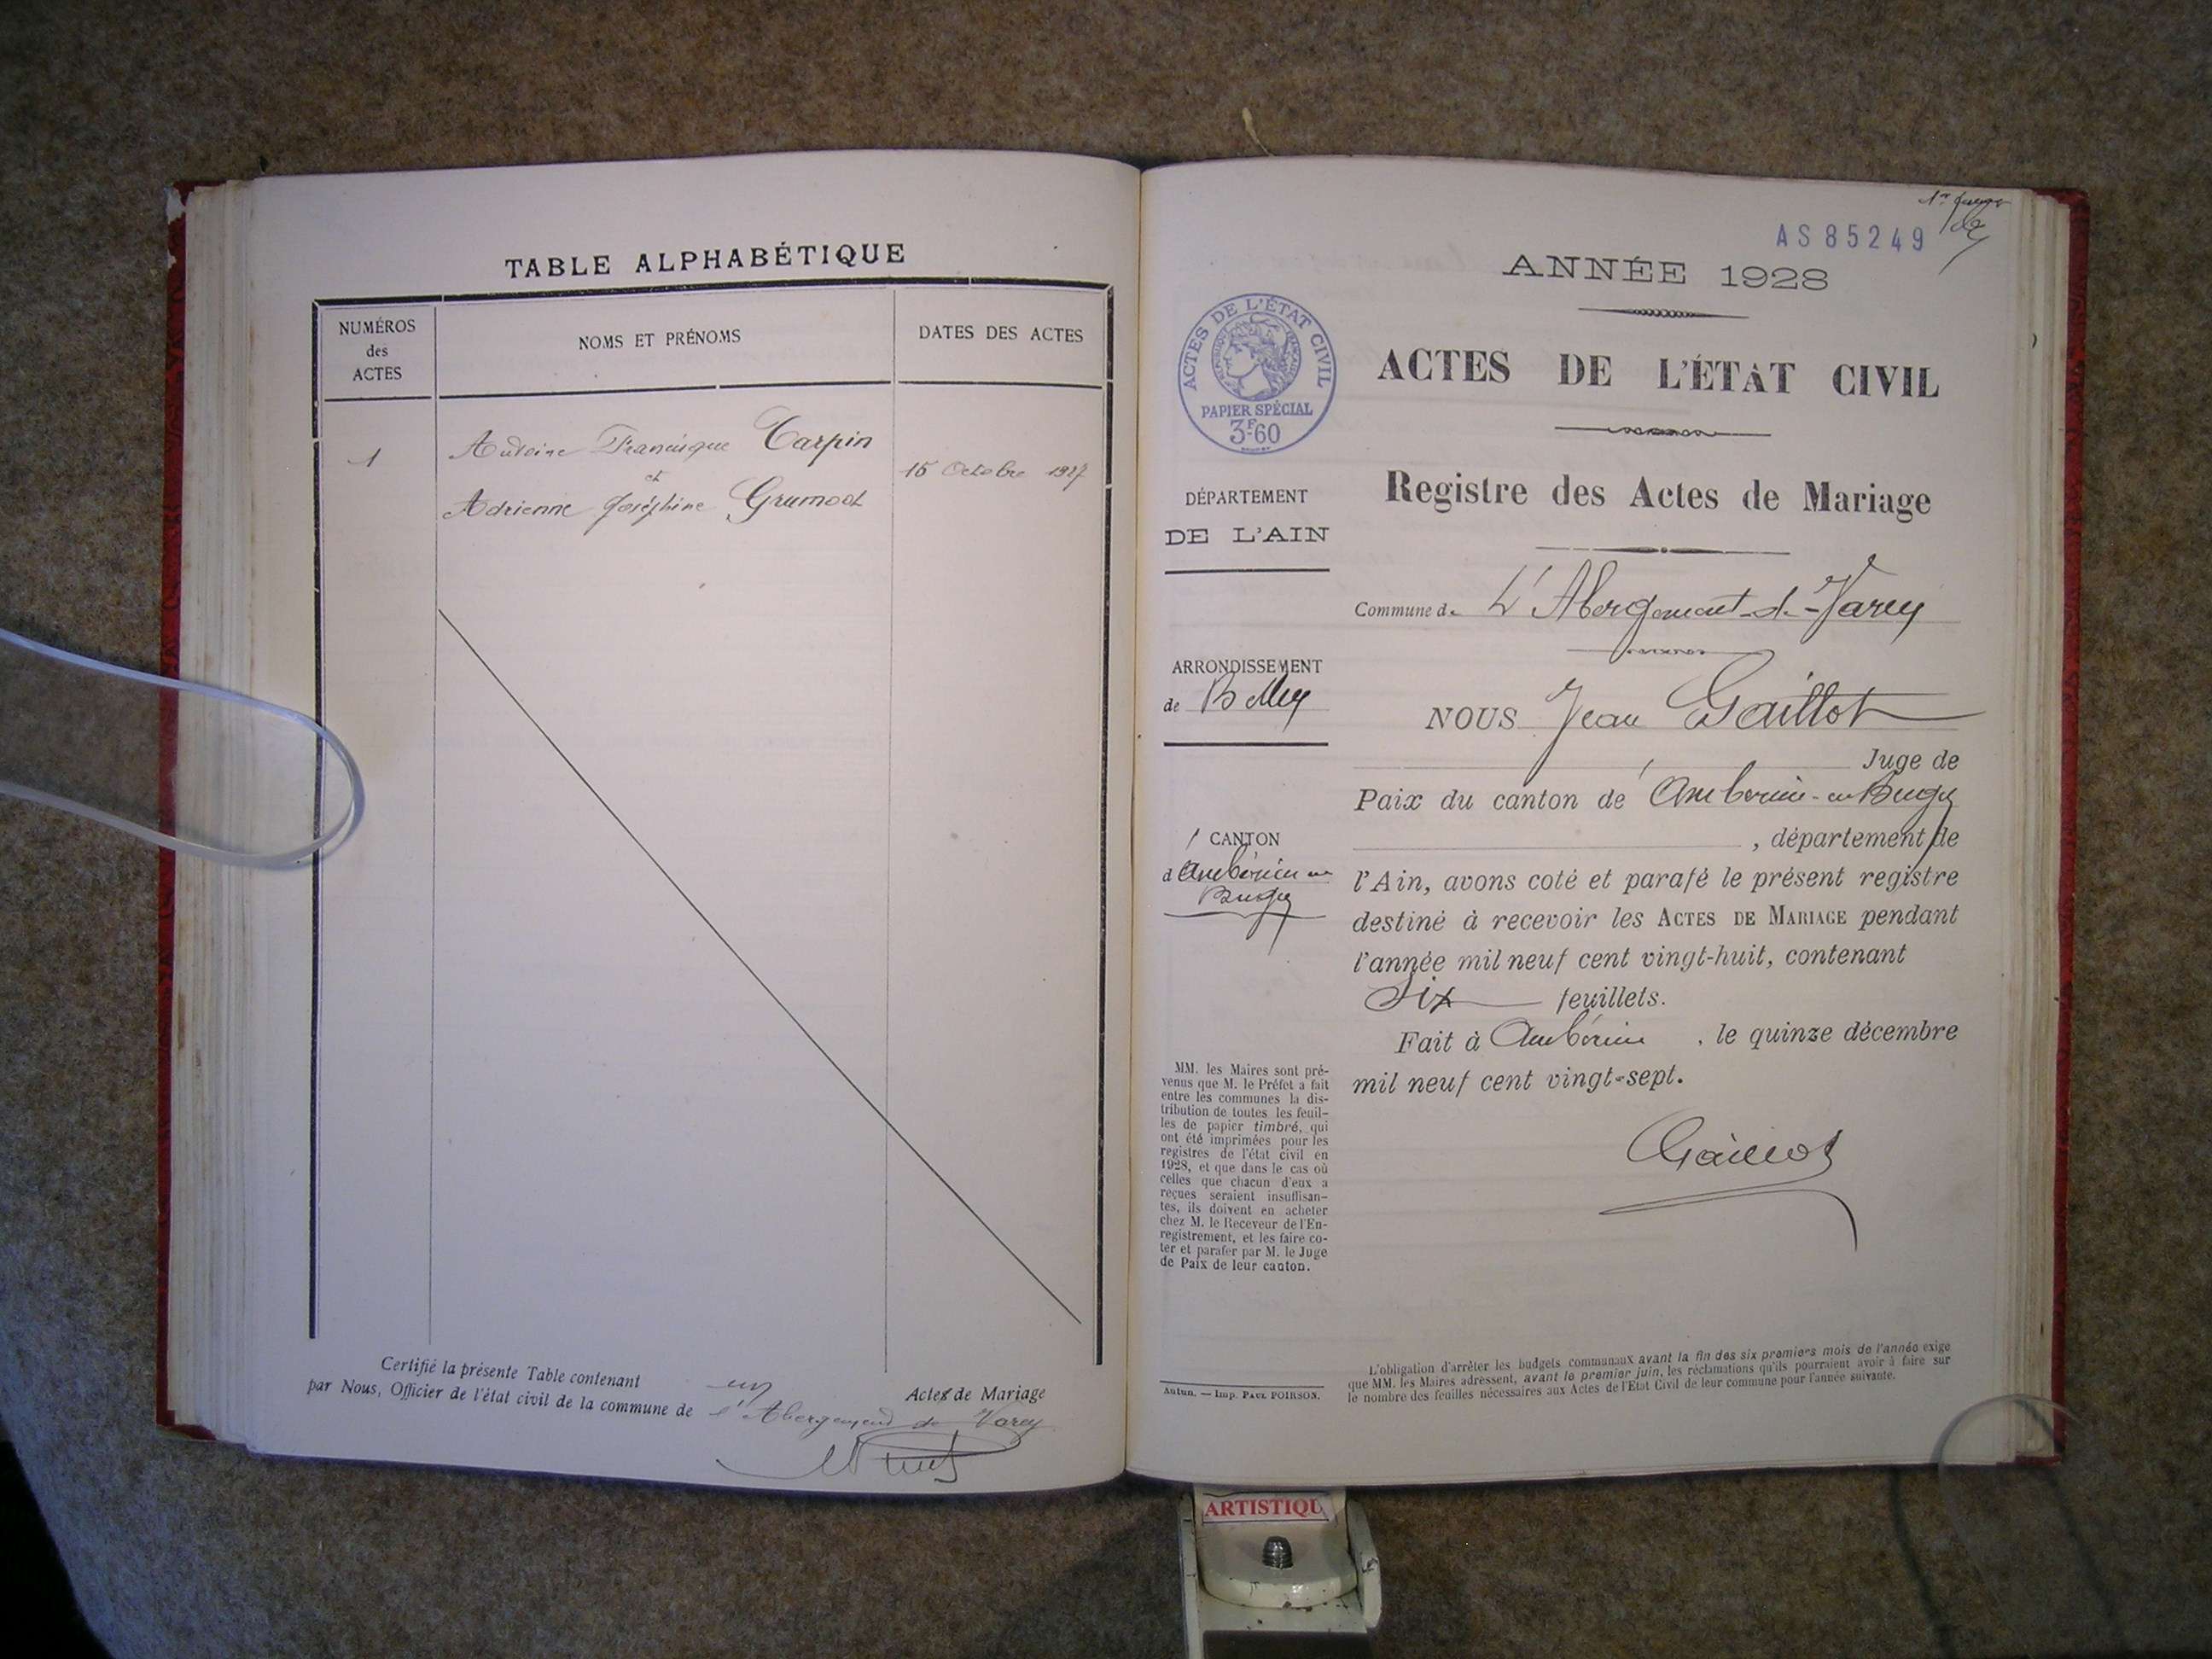 TABLE ALPHABÉTIQUE
NUMÉROS
des
ACTES
NOMS ET PRÉNOMS
DATES DES ACTES
1
Antoine Francisque Carpin
et
Adrienne Joséphine Grumod
15 Octobre 1927
Certifié la présente Table contenant un Actes de Mariage
par Nous, Officier de l'état civil de la commune de l'Abergement de Varey
AS 85249
ANNÉE 1928
ACTES DE L'ÉTAT CIVIL
RÉPUBLIQUE FRANÇAISE
PAPIER SPÉCIAL
3F60
ACTES DE L'ÉTAT CIVIL
Registre des Actes de Mariage
DÉPARTEMENT
DE L'AIN
Commune de L'Abergement-de-Varey
ARRONDISSEMENT
de Belley
NOUS Jean Gaillot
Juge de
Paix du canton de Ambérieu-en-Bugey
, département de
CANTON
d'Ambérieu en
Bugey
l'Ain, avons coté et parafé le présent registre
destiné à recevoir les ACTES DE MARIAGE pendant
l'année mil neuf cent vingt-huit, contenant
Six feuillets.
Fait à Ambérieu, le quinze décembre
mil neuf cent vingt-sept.
Gaillot
MM. les Maires sont pré-
venus que M. le Préfet a fait
entre les communes la dis-
tribution de toutes les feuil-
les de papier timbré, qui
ont été imprimées pour les
registres de l'état civil en
1928, et que dans le cas où
celles que chacun d'eux a
reçues seraient insuffisan-
tes, ils doivent en acheter
chez M. le Receveur de l'En-
registrement, et les faire co-
ter et parafer par M. le Juge
de Paix de leur canton.
Autun. — Imp. PAUL POIRSON.
L'obligation d'arrêter les budgets communaux avant la fin des six premiers mois de l'année exige
que MM. les Maires adressent, avant le premier juin, les réclamations qu'ils pourraient avoir à faire sur
le nombre des feuilles nécessaires aux Actes de l'Etat Civil de leur commune pour l'année suivante.
ARTISTIQU